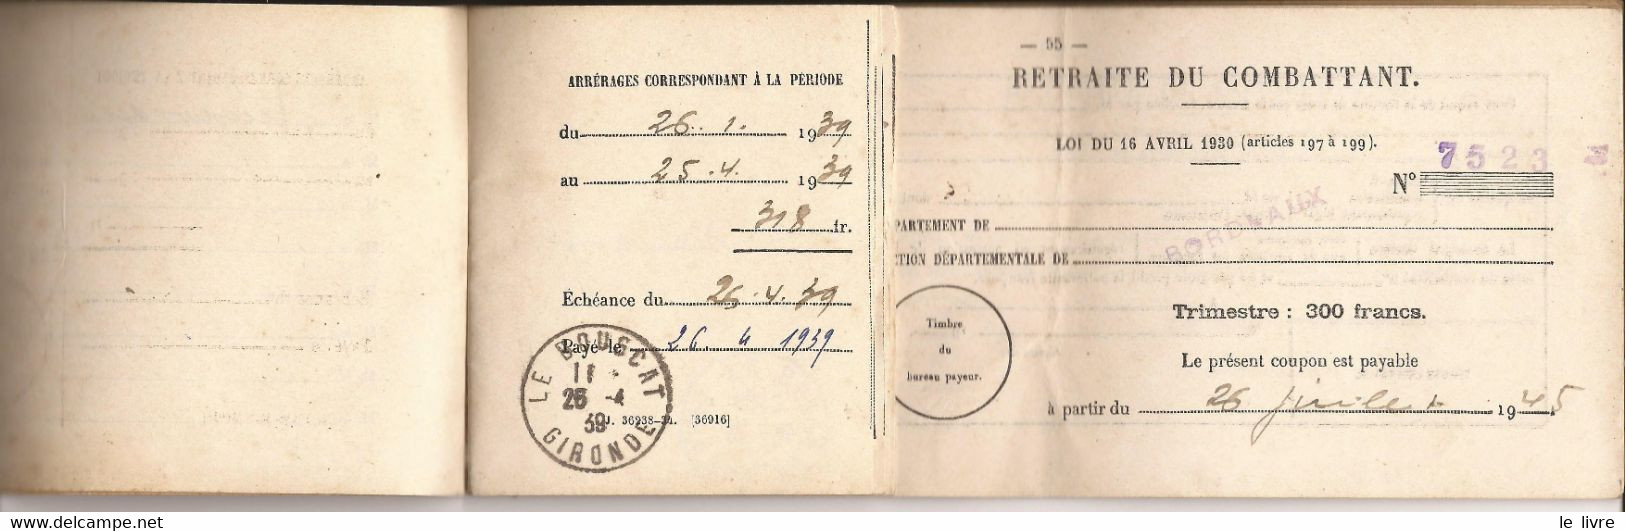 ARRÉRAGES CORRESPONDANT À LA PÉRIODE
du 26. 1. 1939
au 25. 4. 1939
318 fr.
Échéance du 26. 4. 39
Payé le 26 4 1939
LE BOUSCAT
11
26 -4
39
GIRONDE
J. 36938-31. [36916]
— 55 —
RETRAITE DU COMBATTANT.
LOI DU 16 AVRIL 1930 (articles 197 à 199).
N° 7523
PARTEMENT DE
BORDEAUX
CTION DÉPARTEMENTALE DE
Timbre
du
bureau payeur.
Trimestre : 300 francs.
Le présent coupon est payable
à partir du 26 juillet 1945
www.delcampe.net
le livre